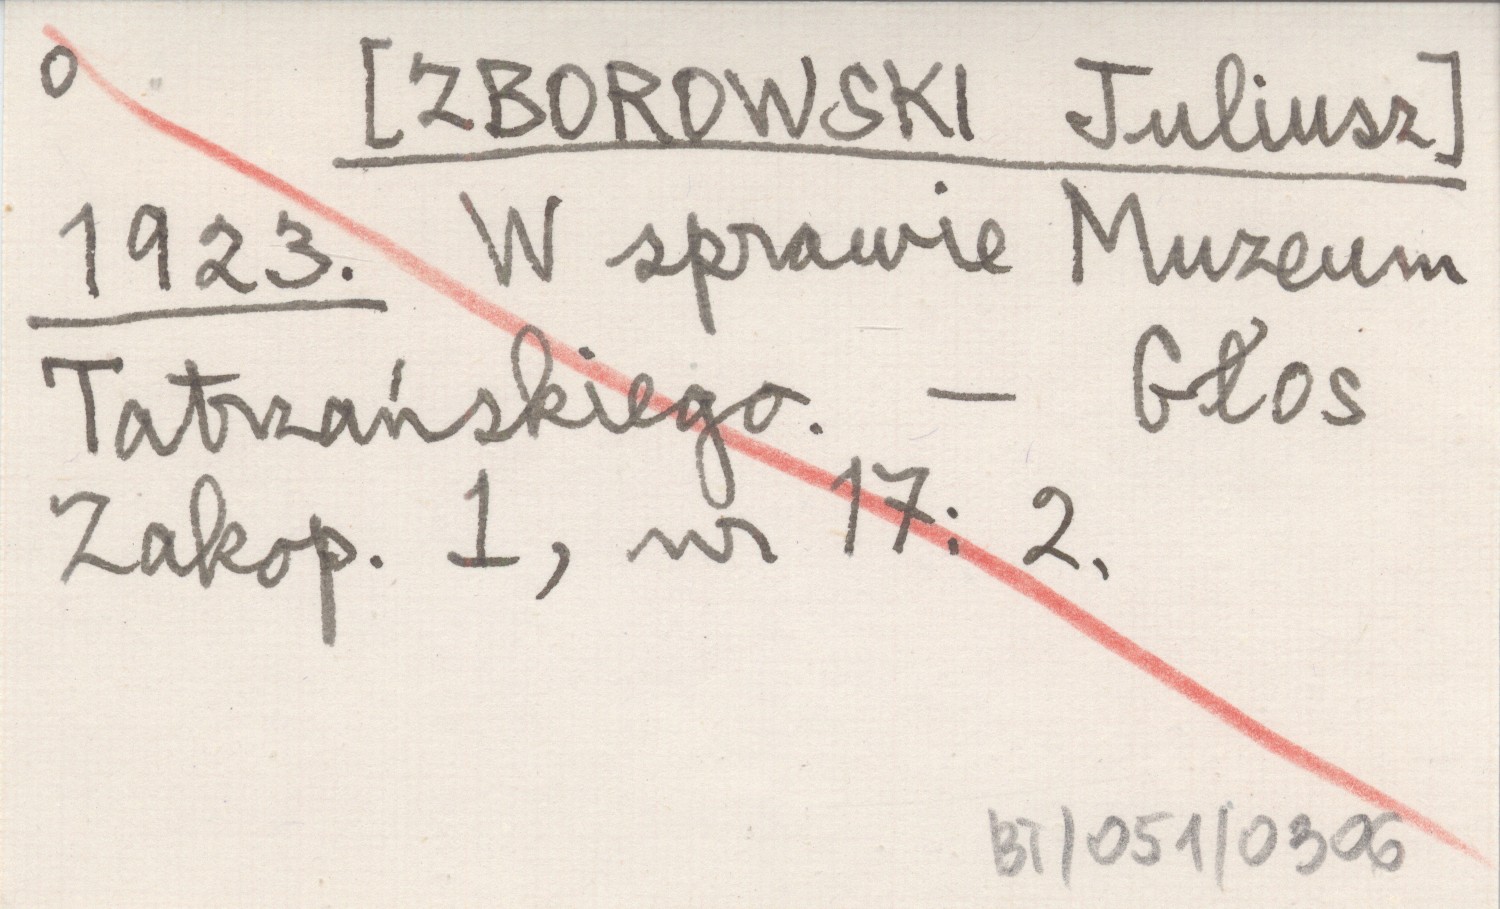 o [ZBOROWSKI Juliusz]
1923. W sprawie Muzeum
Tatrzańskiego. — Głos
Zakop. 1, nr 17: 2.
BT/051/0306